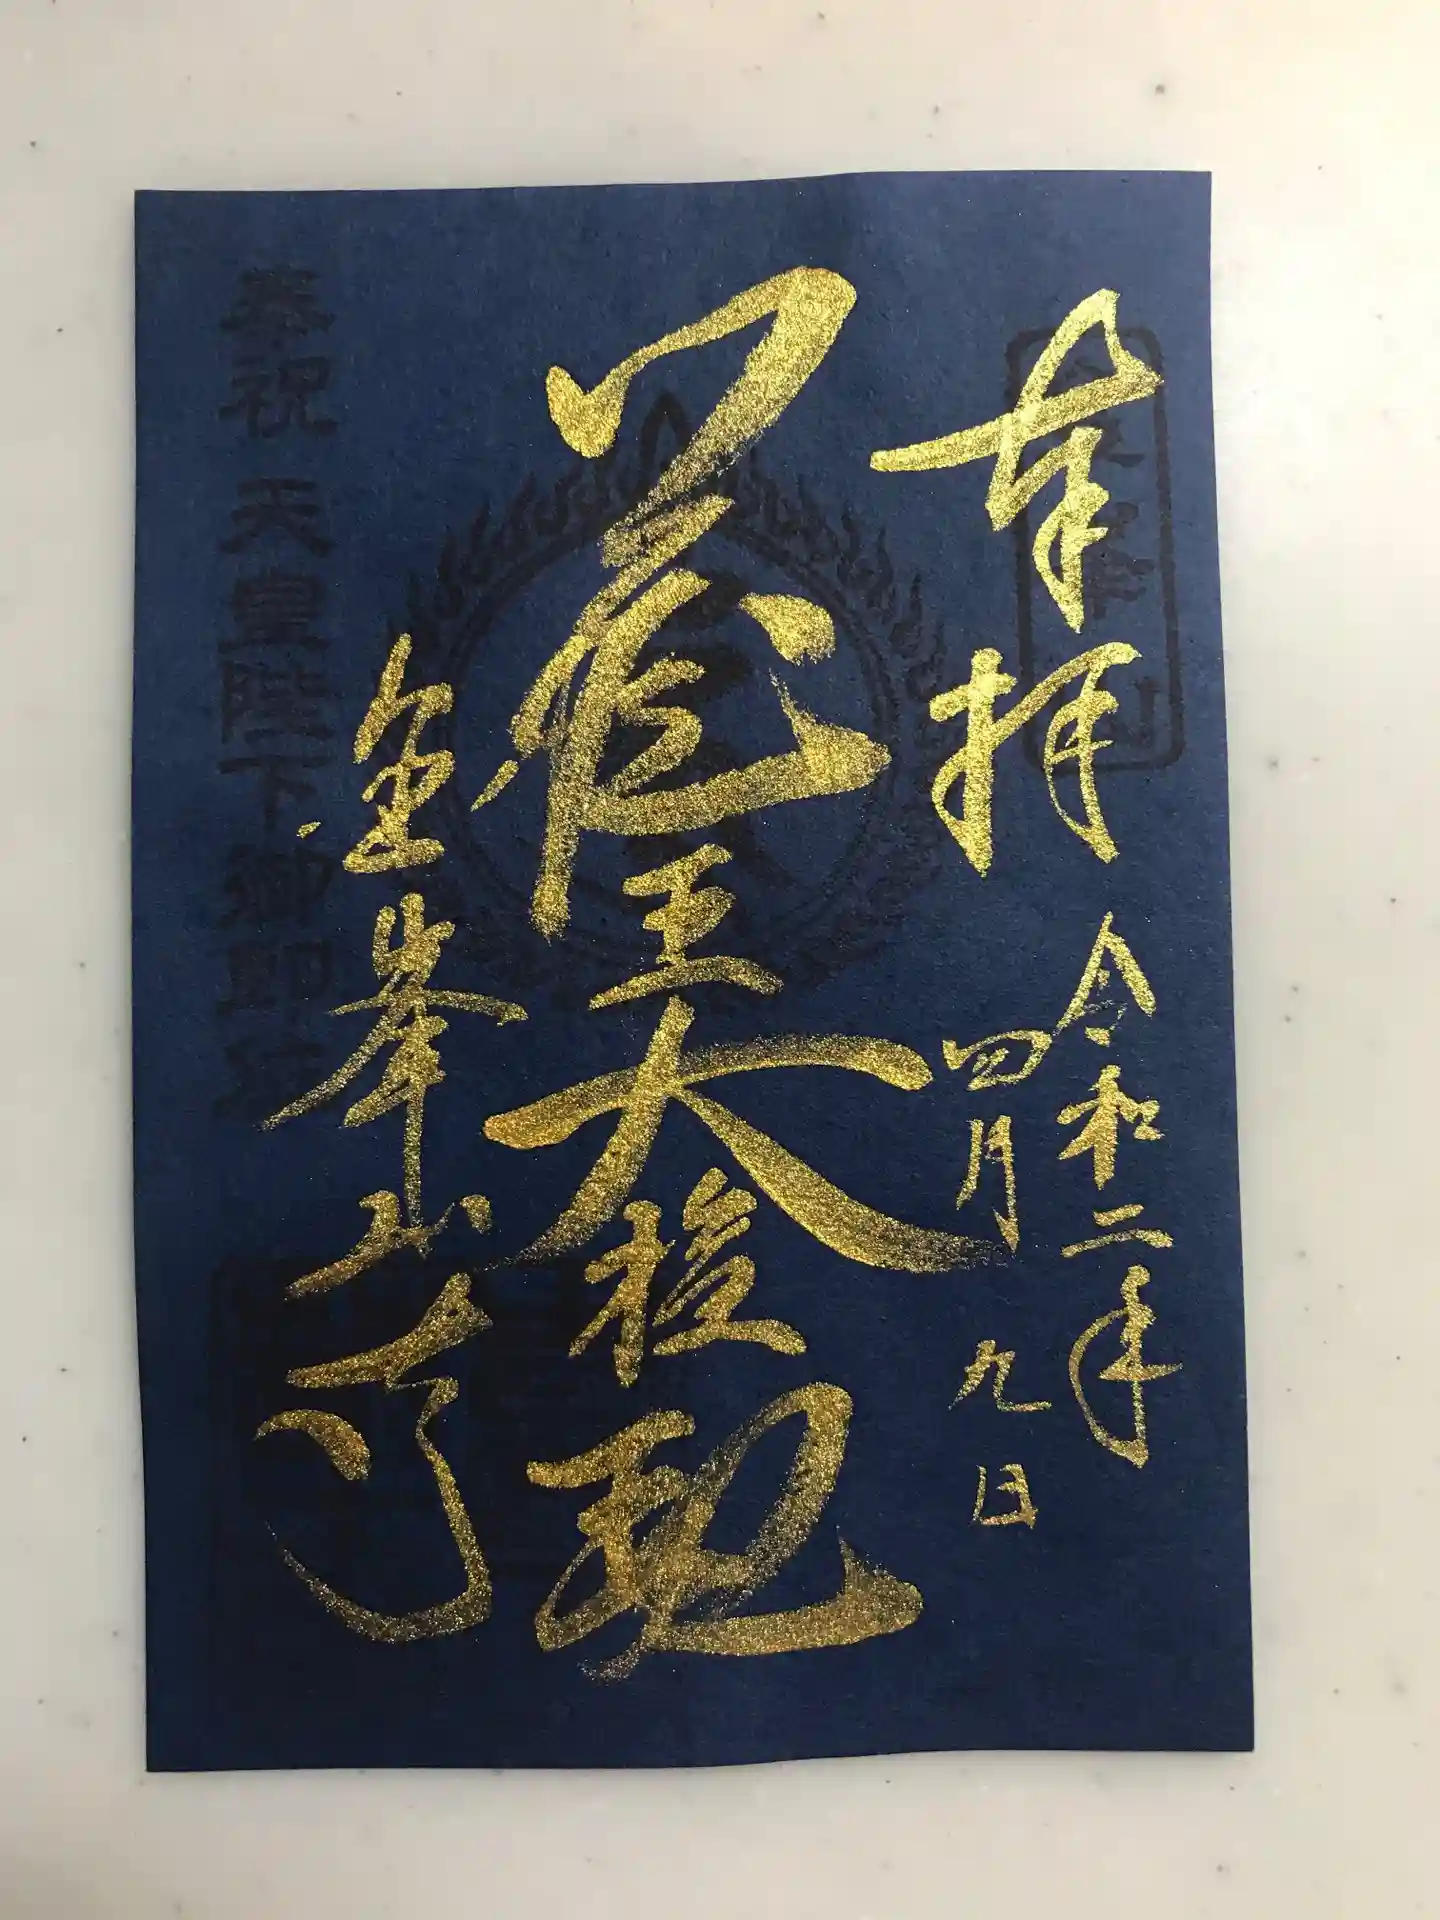 奉拝
令和二年
四月九日
蔵王大権現
金峯山寺
奉祝 天皇陛下御即位